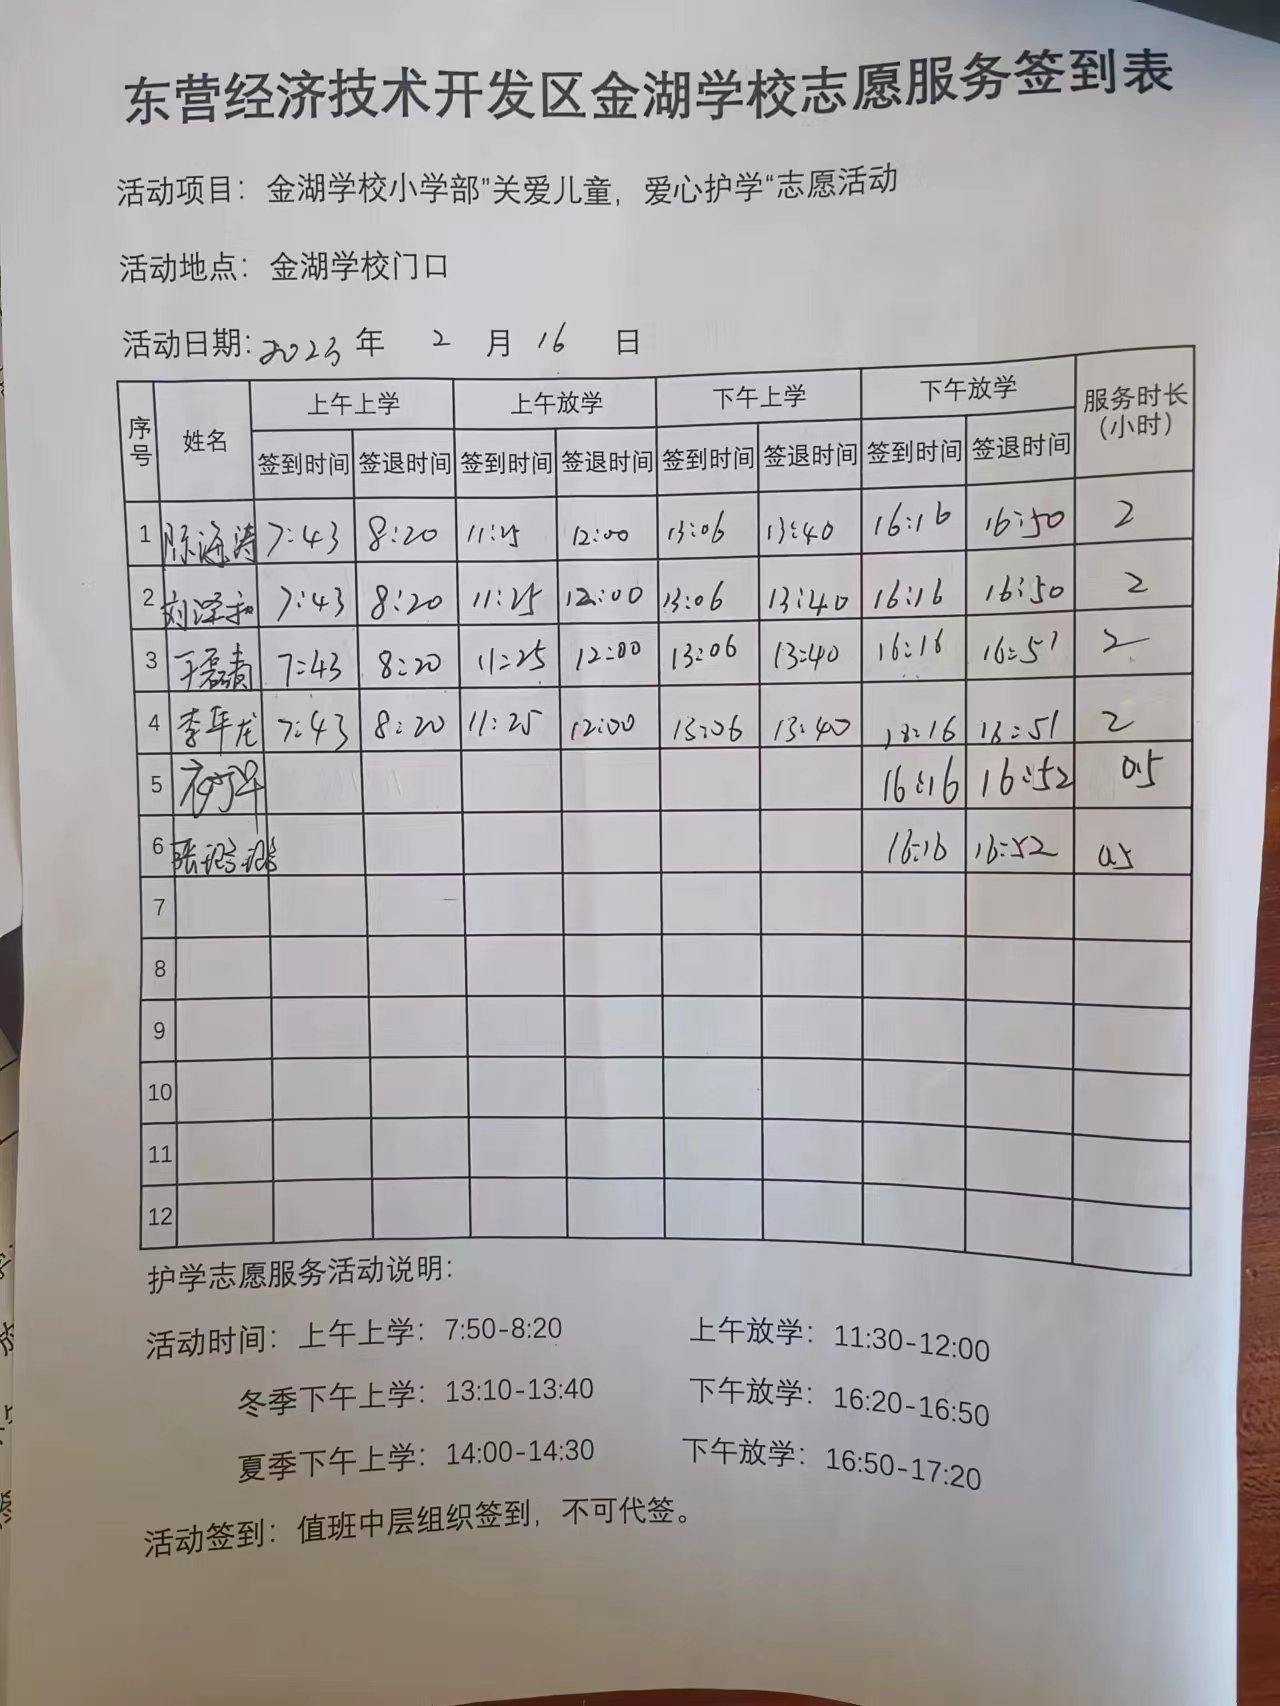 东营经济技术开发区金湖学校志愿服务签到表
活动项目：金湖学校小学部”关爱儿童，爱心护学“志愿活动
活动地点：金湖学校门口
活动日期：2023 年 2 月 16 日
序号 姓名 上午上学 上午放学 下午上学 下午放学 服务时长（小时）
签到时间 签退时间 签到时间 签退时间 签到时间 签退时间 签到时间 签退时间
1 陈海涛 7:43 8:20 11:25 12:00 13:06 13:40 16:16 16:50 2
2 7:43 8:20 11:25 12:00 13:06 13:40 16:16 16:50 2
3 7:43 8:20 11:25 12:00 13:06 13:40 16:16 16:51 2
4 李年龙 7:43 8:20 11:25 12:00 13:06 13:40 16:16 16:51 2
5 16:16 16:52 0.5
6 16:16 16:52 0.5
7
8
9
10
11
12
护学志愿服务活动说明：
活动时间：上午上学：7:50-8:20 上午放学：11:30-12:00
冬季下午上学：13:10-13:40 下午放学：16:20-16:50
夏季下午上学：14:00-14:30 下午放学：16:50-17:20
活动签到：值班中层组织签到，不可代签。